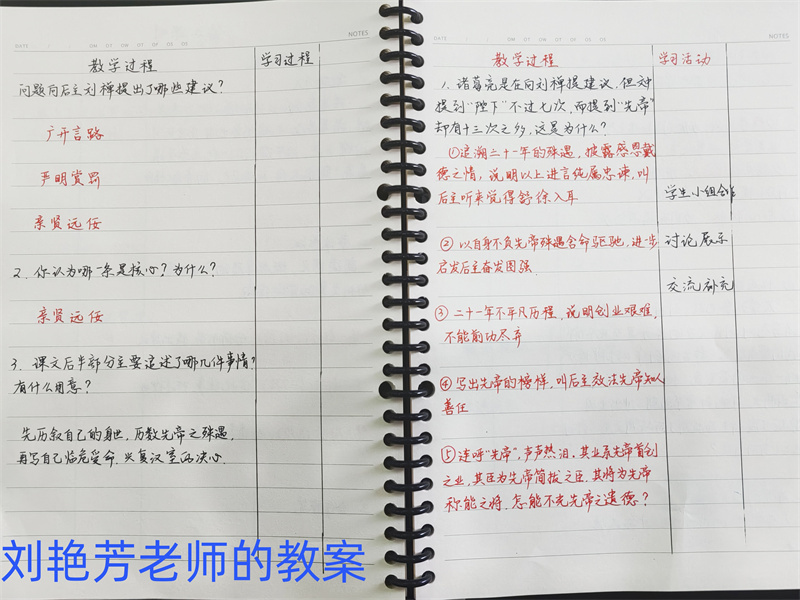 DATE
NOTES
教学过程 学习过程
问题向后主刘禅提出了哪些建议?
广开言路
严明赏罚
亲贤远佞
2、你认为哪一条是核心?为什么?
亲贤远佞
3、课文后半部分主要追述了哪几件事情?
有什么用意?
先历叙自己的身世,历数先帝之殊遇,
再写自己临危受命、兴复汉室的决心.
刘艳芳老师的教案
DATE
NOTES
教学过程 学习活动
1、诸葛亮是在向刘禅提建议,但对
提到“陛下”不过七次,而提到“先帝”
却有十三次之多,这是为什么?
①追溯二十一年的殊遇,披露感恩戴
德之情,说明以上进言纯属忠谏,叫
后主听来觉得舒徐入耳
学生小组合作
②以自身不负先帝殊遇舍命驱驰,进步
讨论展示
启发后主奋发图强.
交流补充
③二十一年不平凡历程,说明创业艰难,
不能前功尽弃
④写出先帝的榜样,叫后主效法先帝知人
善任
⑤连呼“先帝”,声声热泪,其业系先帝首创
之业,其臣为先帝简拔之臣,其将为先帝
称能之将,怎能不光先帝之遗德?